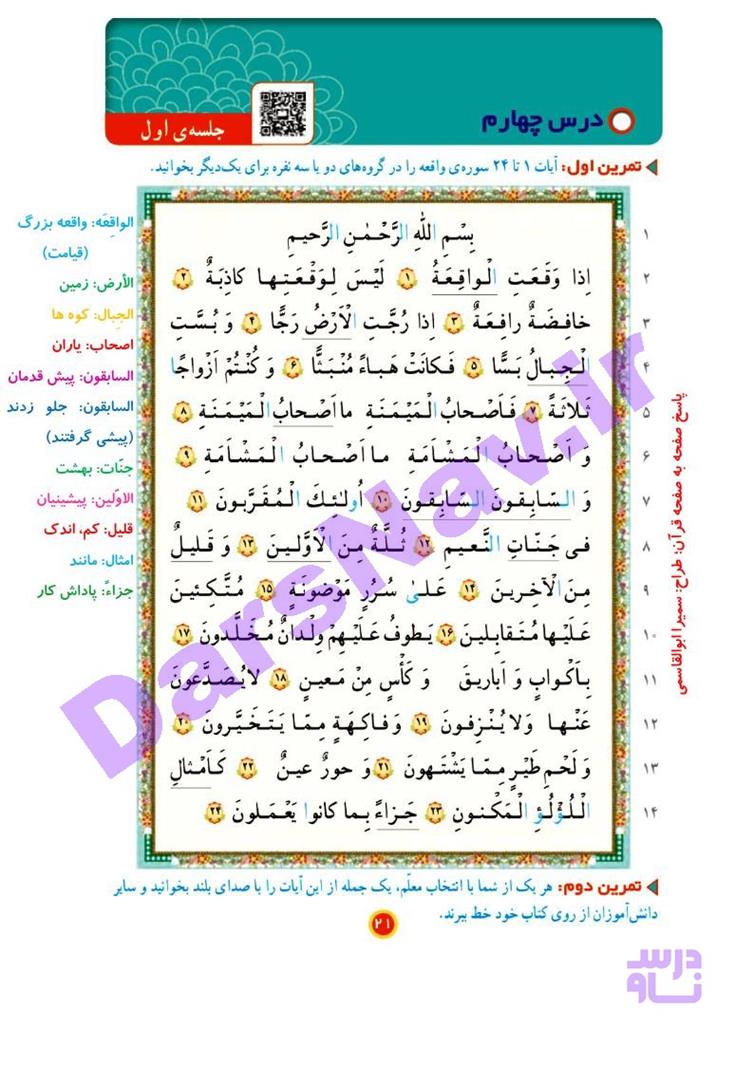 درس چهارم
جلسه‌ی اول
تمرین اول: آیات ۱ تا ۲۴ سوره‌ی واقعه را در گروه‌های دو یا سه نفره برای یک‌دیگر بخوانید.
۱ بِسْمِ اللهِ الرَّحْمٰنِ الرَّحیمِ
۲ اِذا وَقَعَتِ الْواقِعَةُ ۱ لَیْسَ لِوَقْعَتِها کاذِبَةٌ ۲
۳ خافِضَةٌ رافِعَةٌ ۳ اِذا رُجَّتِ الْاَرْضُ رَجًّا ۴ وَ بُسَّتِ
۴ الْجِبالُ بَسًّا ۵ فَکانَتْ هَباءً مُنْبَثًّا ۶ وَ کُنْتُمْ اَزْواجًا
۵ ثَلاثَةً ۷ فَاَصْحابُ الْمَیْمَنَةِ ما اَصْحابُ الْمَیْمَنَةِ ۸
۶ وَ اَصْحابُ الْمَشْاَمَةِ ما اَصْحابُ الْمَشْاَمَةِ ۹
۷ وَ السّابِقونَ السّابِقونَ ۱۰ اُولٰئِكَ الْمُقَرَّبونَ ۱۱
۸ فی جَنّاتِ النَّعیمِ ۱۲ ثُلَّةٌ مِنَ الْاَوَّلینَ ۱۳ وَ قَلیلٌ
۹ مِنَ الْآخِرینَ ۱۴ عَلیٰ سُرُرٍ مَوْضونَةٍ ۱۵ مُتَّکِئینَ
۱۰ عَلَیْها مُتَقابِلینَ ۱۶ یَطوفُ عَلَیْهِمْ وِلْدانٌ مُخَلَّدونَ ۱۷
۱۱ بِاَکْوابٍ وَ اَباریقَ وَ کَأْسٍ مِنْ مَعینٍ ۱۸ لا یُصَدَّعونَ
۱۲ عَنْها وَ لا یُنْزِفونَ ۱۹ وَ فاکِهَةٍ مِمّا یَتَخَیَّرونَ ۲۰
۱۳ وَ لَحْمِ طَیْرٍ مِمّا یَشْتَهونَ ۲۱ وَ حورٌ عینٌ ۲۲ کَاَمْثالِ
۱۴ اللُّؤْلُؤِ الْمَکْنونِ ۲۳ جَزاءً بِما کانوا یَعْمَلونَ ۲۴
الواقِعَه: واقعه بزرگ
(قیامت)
الأرض: زمین
الجِبال: کوه ها
اصحاب: یاران
السابقون: پیش قدمان
السابقون: جلو زدند
(پیشی گرفتند)
جنّات: بهشت
الاوّلین: پیشینیان
قلیل: کم، اندک
امثال: مانند
جزاءً: پاداش کار
پاسخ صفحه به صفحه قرآن: طراح: سمیرا ابوالقاسمی
DarsNav.ir
تمرین دوم: هر یک از شما با انتخاب معلّم، یک جمله از این آیات را با صدای بلند بخوانید و سایر
دانش‌آموزان از روی کتاب خود خط ببرند.
۲۱
درس
ناو